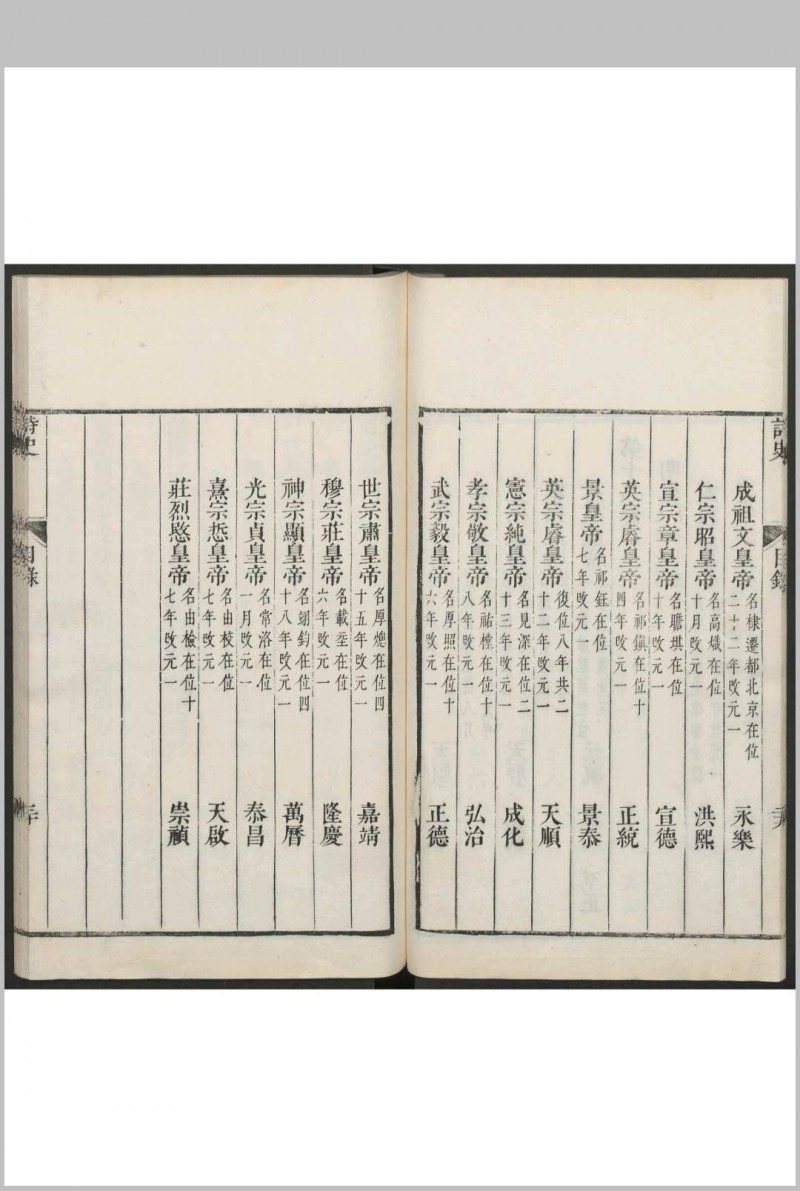 成祖文皇帝 名棣遷都北京在位二十二年改元一 永樂
仁宗昭皇帝 名高熾在位十月改元一 洪熙
宣宗章皇帝 名瞻基在位十年改元一 宣德
英宗睿皇帝 名祁鎮在位十四年改元一 正統
景皇帝 名祁鈺在位七年改元一 景泰
英宗睿皇帝 復位八年共二十二年改元一 天順
憲宗純皇帝 名見深在位二十三年改元一 成化
孝宗敬皇帝 名祐樘在位十八年改元一 弘治
武宗毅皇帝 名厚照在位十六年改元一 正德
世宗肅皇帝 名厚熜在位四十五年改元一 嘉靖
穆宗莊皇帝 名載坖在位六年改元一 隆慶
神宗顯皇帝 名翊鈞在位四十八年改元一 萬曆
光宗貞皇帝 名常洛在位一月改元一 泰昌
熹宗悊皇帝 名由校在位七年改元一 天啟
莊烈愍皇帝 名由檢在位十七年改元一 崇禎
詩史 目錄